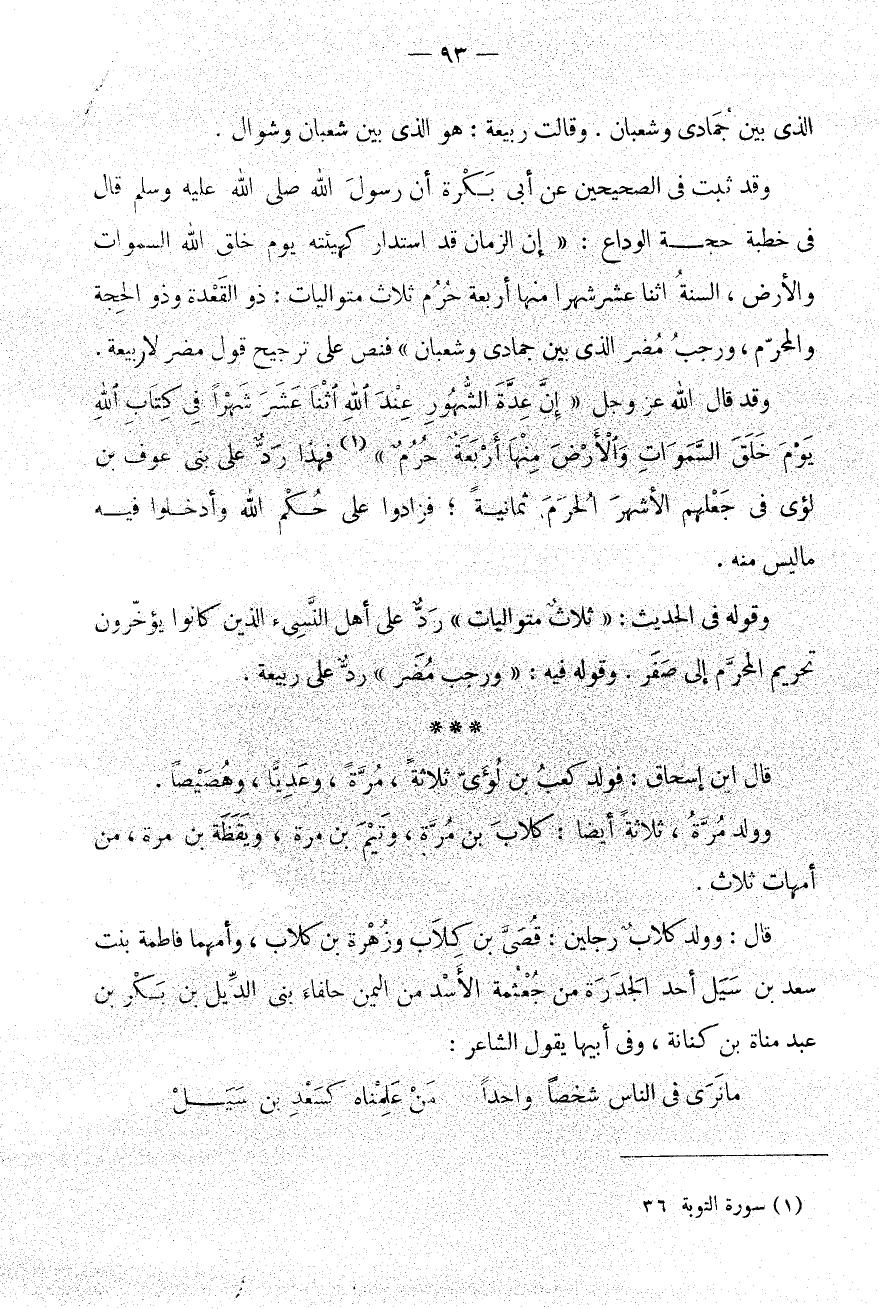 — ٩٣ —
الذى بين جُمَادى وشعبان . وقالت ربيعة : هو الذى بين شعبان وشوال .
وقد ثبت فى الصحيحين عن أبى بَكْرة أن رسولَ الله صلى الله عليه وسلم قال
فى خطبة حجة الوداع : « إن الزمان قد استدار كهيئته يوم خلق الله السموات
والأرض ، السنةُ اثنا عشر شهرا منها أربعة حُرُم ثلاث متواليات : ذو القَعْدة وذو الحِجة
والمحرّم ، ورجبُ مُضر الذى بين جمادى وشعبان » فنص على ترجيح قول مضر لا ربيعة .
وقد قال الله عز وجل « إِنَّ عِدَّةَ الشُّهُورِ عِنْدَ ٱللهِ ٱثْنَا عَشَرَ شَهْرًا فِى كِتَابِ ٱللهِ
يَوْمَ خَلَقَ السَّمَوَاتِ وَٱلْأَرْضَ مِنْهَا أَرْبَعَةٌ حُرُمٌ » (١) فهذا رَدٌّ على بنى عوف بن
لؤى فى جَعْلهم الأشهرَ الحُرَمَ ثمانيةً ؛ فزادوا على حُكْم الله وأدخلوا فيه
ماليس منه .
وقوله فى الحديث : « ثلاثٌ متواليات » رَدٌّ على أهل النَّسِىء الذين كانوا يؤخّرون
تحريم المحرَّم إلى صَفَر . وقوله فيه : « ورجب مُضَر » ردٌّ على ربيعة .
***
قال ابن إسحاق : فولد كعبُ بن لُؤَىّ ثلاثةً ، مُرَّةً ، وعَدِيًّا ، وهُصَيْصاً .
وولد مُرَّةُ ، ثلاثةً أيضا : كلابَ بن مُرَّةِ ، وتَيْمَ بن مرة ، ويَقَظَة بن مرة ، من
أمهات ثلاث .
قال : وولد كلابٌ رجلين : قُصَىَّ بن كِلَاب وزُهْرة بن كلاب ، وأمهما فاطمة بنت
سعد بن سَيَل أحد الجَدَرَة من جُعْثُمة الأَسْد من اليمن حلفاء بنى الدِّيل بن بَكْر بن
عبد مناة بن كنانة ، وفى أبيها يقول الشاعر :
مانَرَى فى الناس شخصاً واحداً مَنْ عَلِمْناه كَسَعْدِ بن سَيَلْ
(١) سورة التوبة ٣٦